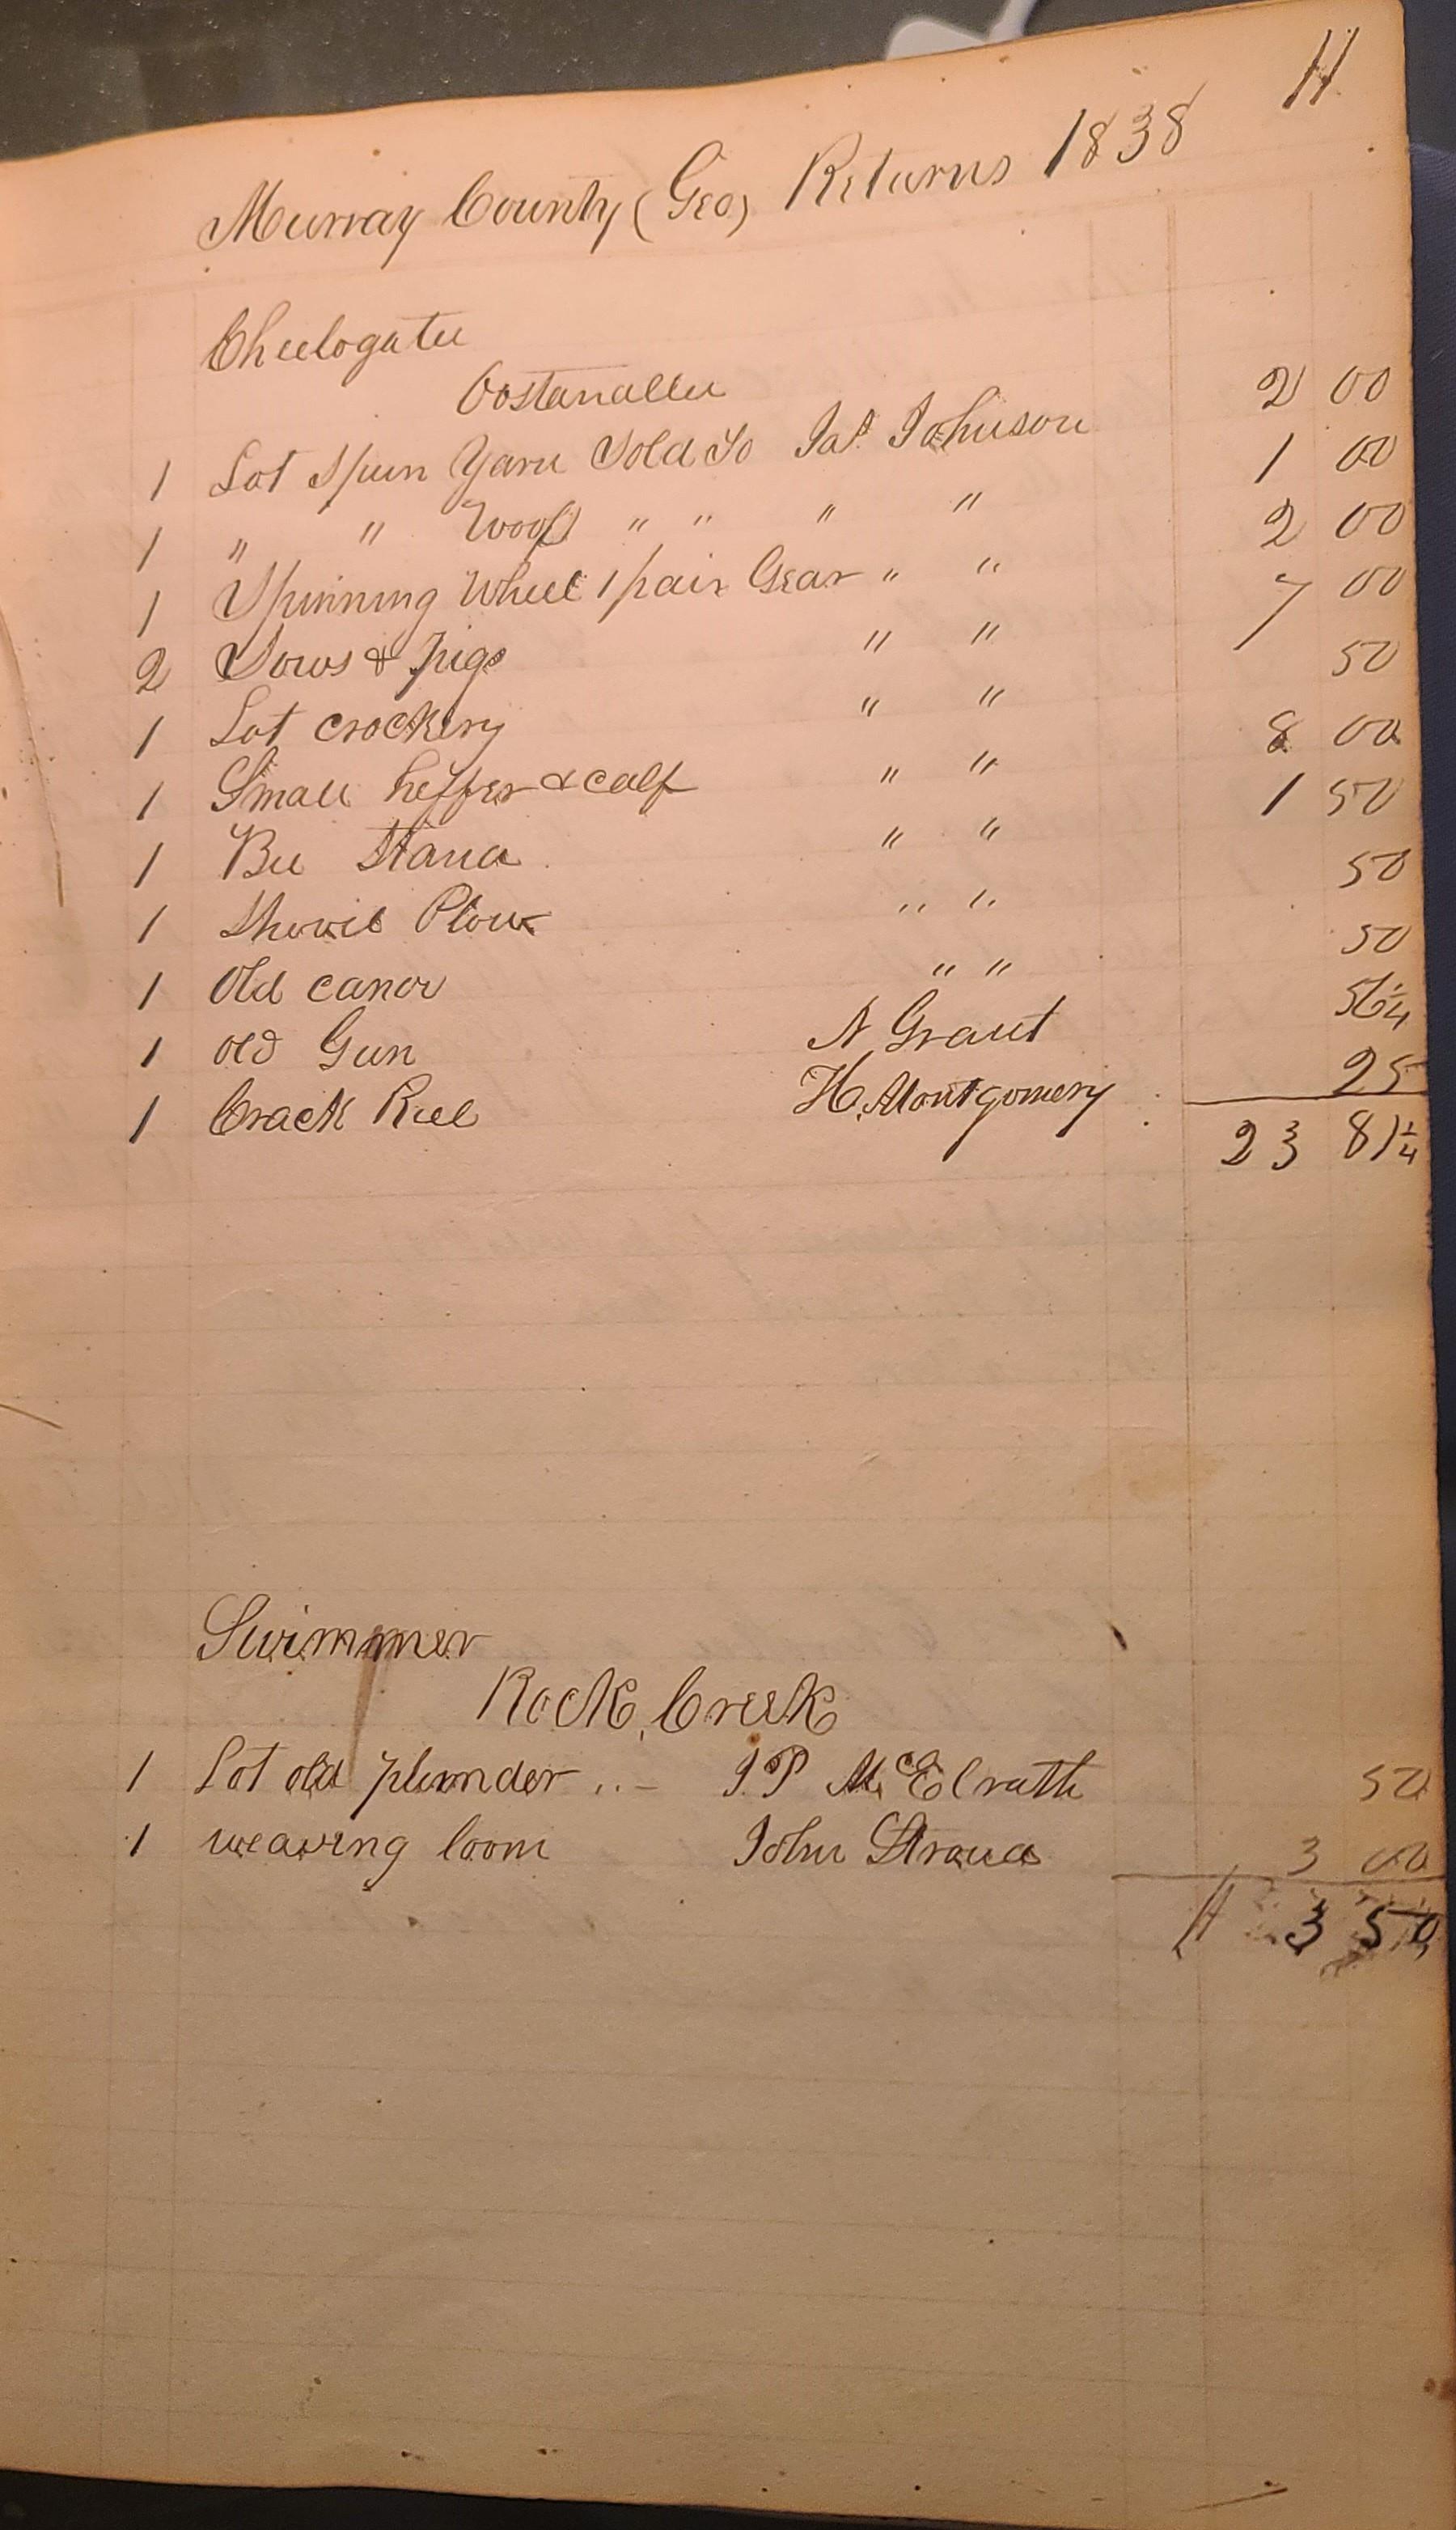 11
Murray County (Geo) Returns 1838
Cheelogatee
Oostanallee
1 Lot Spun Yarn Sold To Jas Johnson 2 00
1 " " Wool " " " " 1 00
1 Spinning Wheel 1 pair Gear " " 2 00
2 Sows & pigs " " 7 00
1 Lot crockery " " 50
1 Small heffer & calf " " 8 00
1 Bee Stand " " 1 50
1 Shovel Plow " " 50
1 Old canoe " " 50
1 old Gun N Grant 56 1/4
1 Crack Reel H. Montgomery 25
23 81 1/4
Swimmer
Rock Creek
1 Lot old plunder J. P McElrath 50
1 weaving loom John Stroud 3 00
3 50